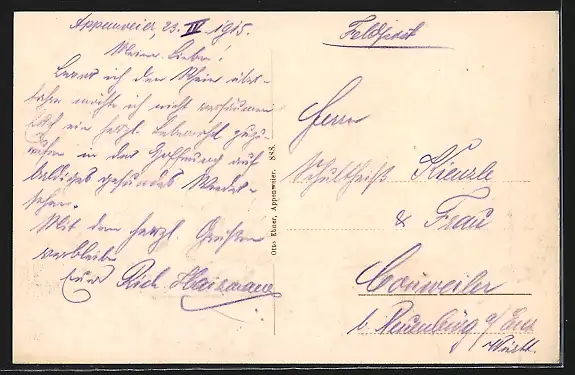 Appenweier 23. IV. 1915.
Meine Lieben!
Bevor ich den Rhein über-
fahre möchte ich nicht versäumen
Euch ein herzl. Lebewohl zuzu-
rufen in der Hoffnung auf
baldiges gesundes Wieder-
sehen.
Mit den herzl. Grüßen
verbleibe
Euer Rich. Haizmann
Otto Ebner, Appenweier. 888.
Feldpost
Herrn
Schultheiß Kienzle
& Frau
Conweiler
b. Neuenbürg a/Enz
Württ.